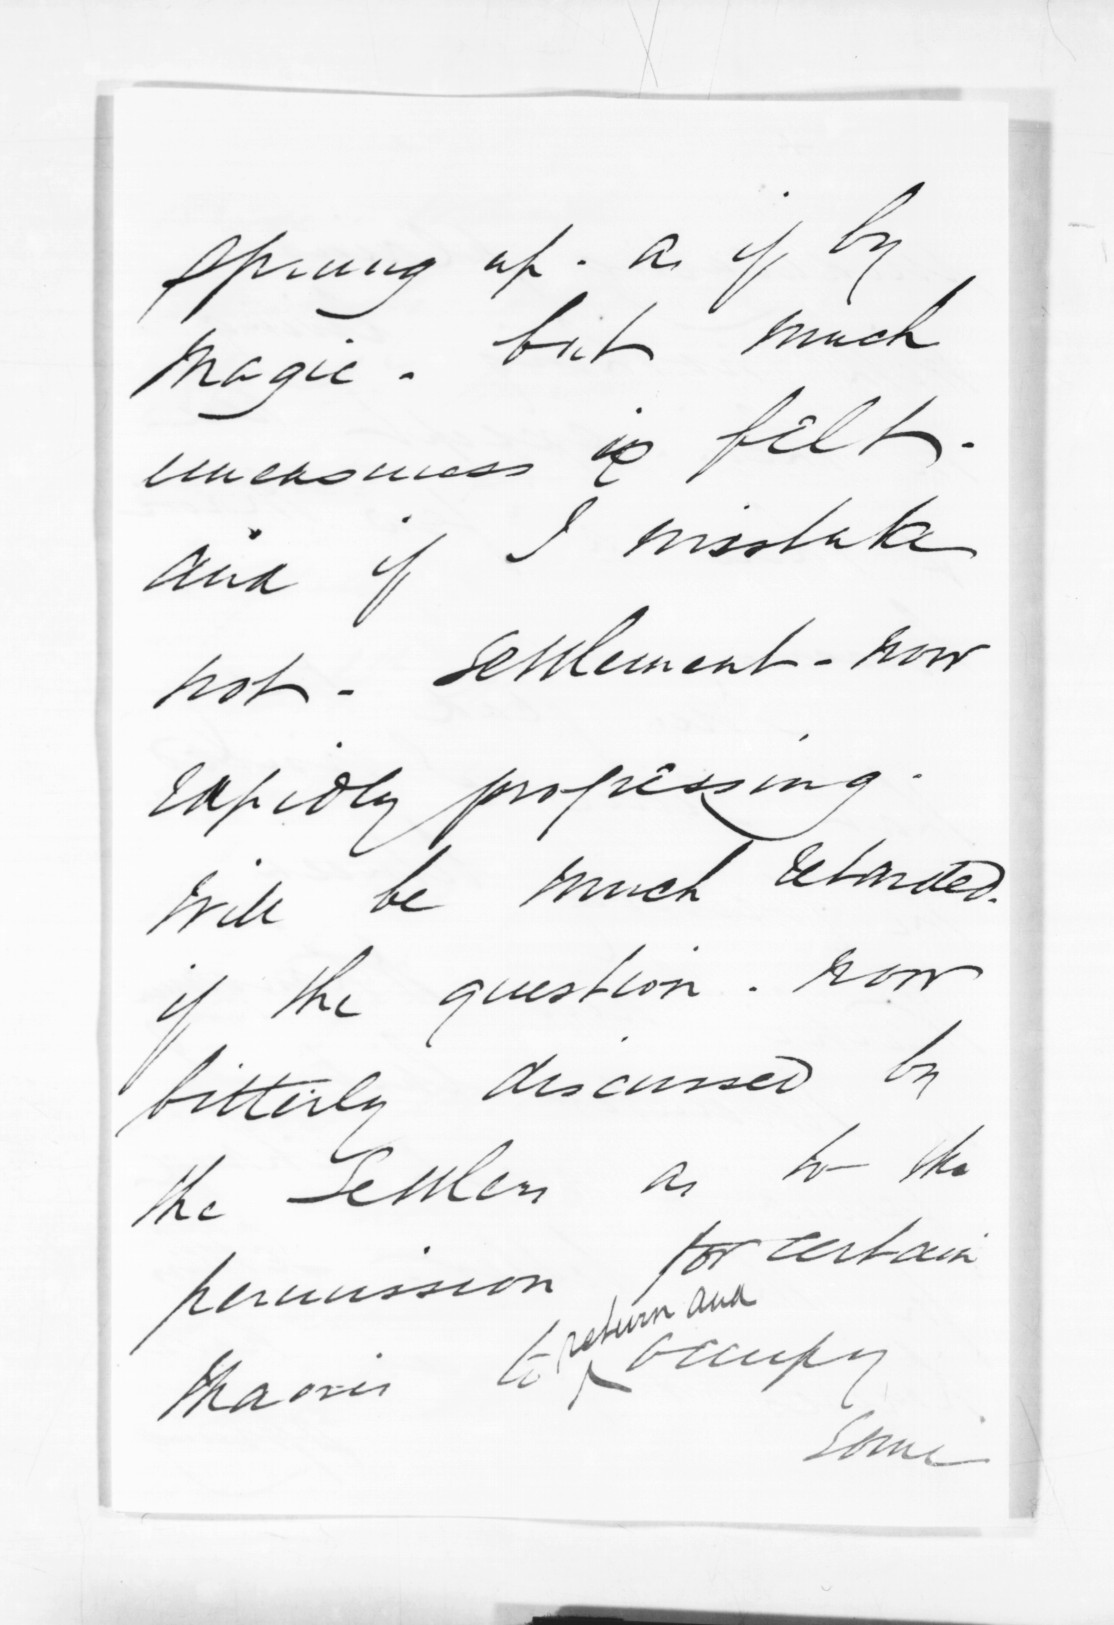 sprung up. as if by
magic. but much
uneasiness is felt.
and if I mistake
not. Settlement. now
rapidly progressing.
will be much retarded.
if the question. now
bitterly discussed by
the Settlers as to the
permission for certain
Maoris to return and occupy
some